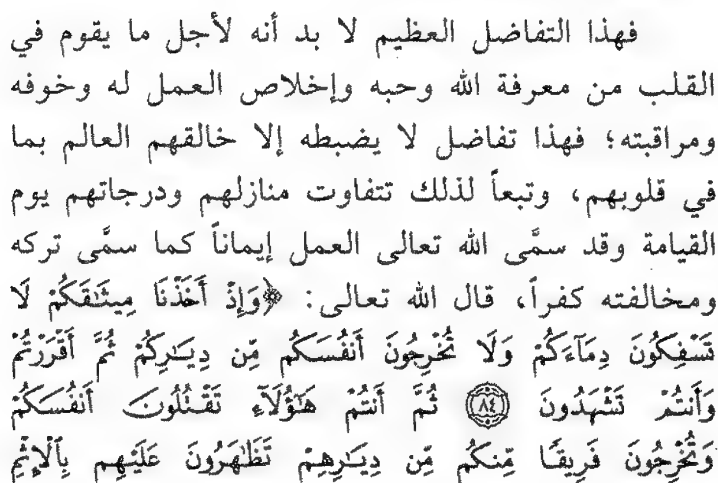 فهذا التفاضل العظيم لا بد أنه لأجل ما يقوم في
القلب من معرفة الله وحبه وإخلاص العمل له وخوفه
ومراقبته؛ فهذا تفاضل لا يضبطه إلا خالقهم العالم بما
في قلوبهم، وتبعاً لذلك تتفاوت منازلهم ودرجاتهم يوم
القيامة وقد سمَّى الله تعالى العمل إيماناً كما سمَّى تركه
ومخالفته كفراً، قال الله تعالى: ﴿وَإِذْ أَخَذْنَا مِيثَٰقَكُمْ لَا
تَسْفِكُونَ دِمَآءَكُمْ وَلَا تُخْرِجُونَ أَنفُسَكُم مِّن دِيَٰرِكُمْ ثُمَّ أَقْرَرْتُمْ
وَأَنتُمْ تَشْهَدُونَ ٨٤ ثُمَّ أَنتُمْ هَٰٓؤُلَآءِ تَقْتُلُونَ أَنفُسَكُمْ
وَتُخْرِجُونَ فَرِيقًا مِّنكُم مِّن دِيَٰرِهِمْ تَظَٰهَرُونَ عَلَيْهِم بِٱلْإِثْمِ